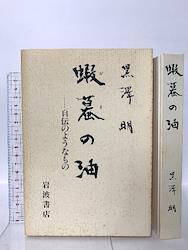 蝦蟇の油
がま
――自伝のようなもの
岩波書店
黒澤明
蝦蟇の油
黒澤明